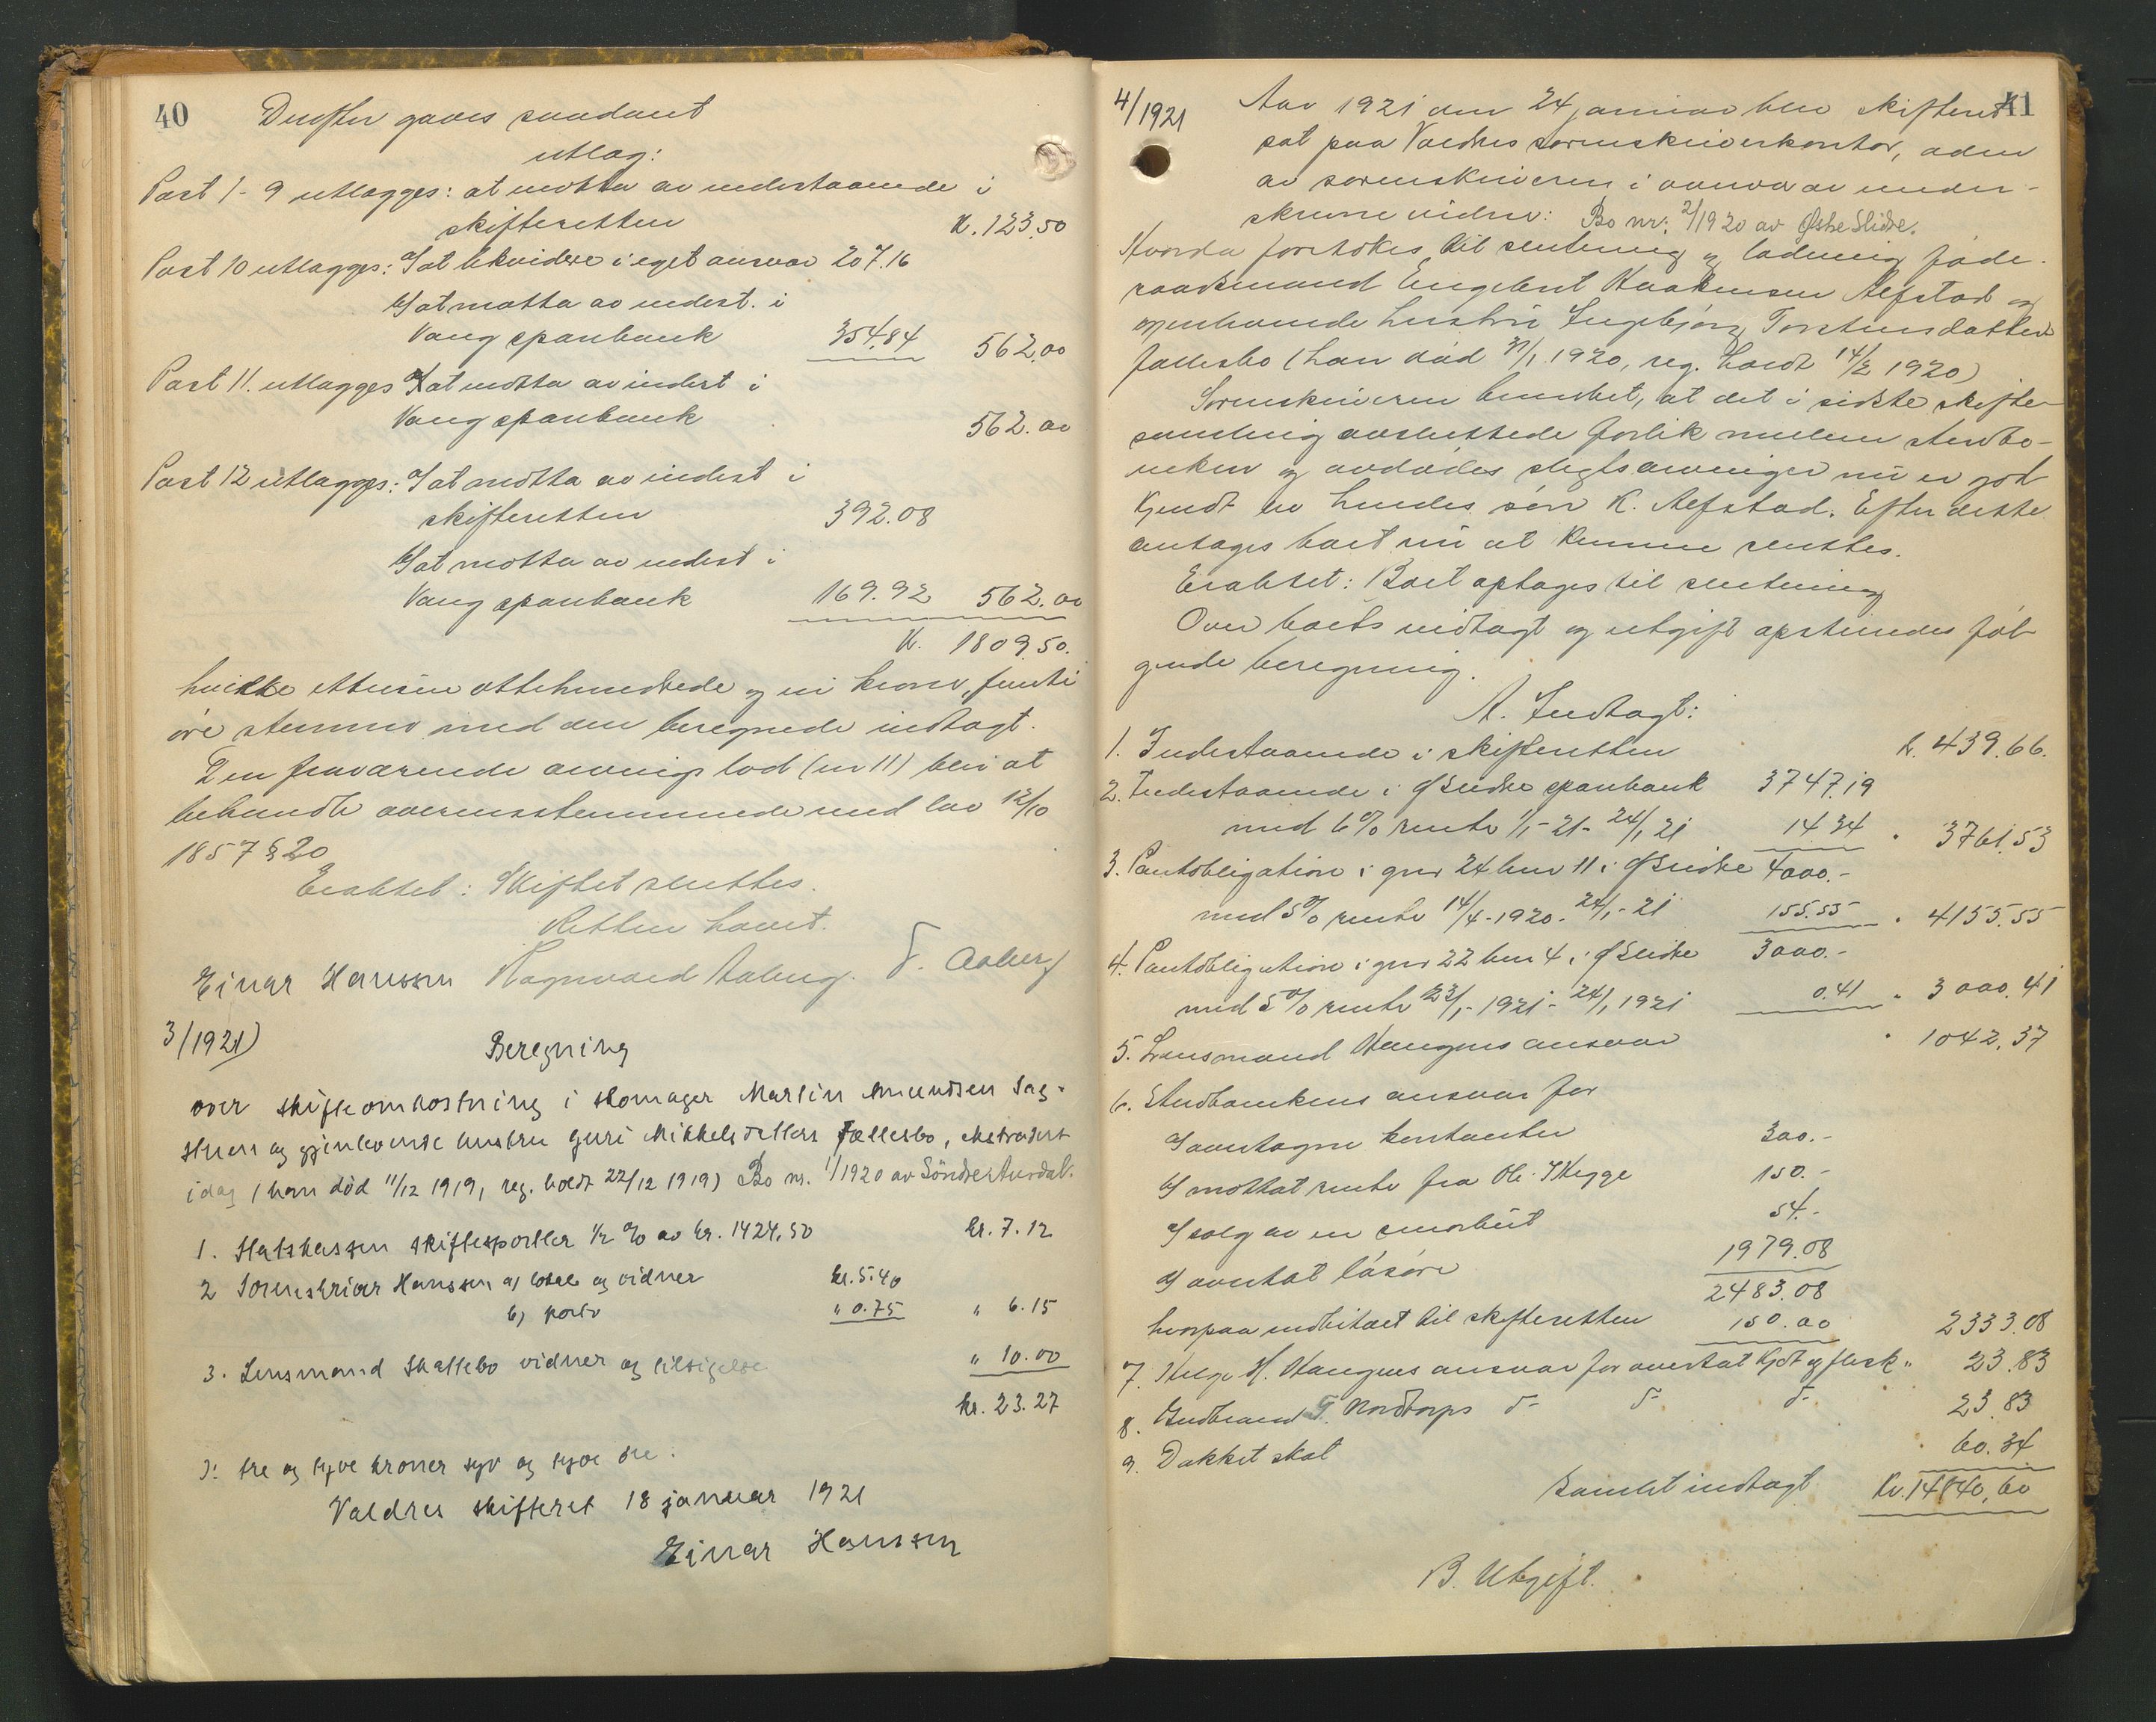 40
Derefter gaves saadant
utlag:
Post 1-9 utlægges: at motta av indestaaende i
skifteretten K. 123,50
Post 10 utlægges: a/ at likvidere i eget ansvar 207.16
b/ at motta av indest. i
Vang sparebank 354.84 562,00
Post 11. utlægges a/ at motta av indest i
Vang sparebank 562.00
Post 12 utlægges: a/ at motta av indest i
skifteretten 392.08
b/ at motta av indest i
Vang sparebank 169.92 562.00
K. 1809,50.
hvilke ettusen ottehundrede og ni kroner, femti
øre stemmer med den beregnede indtægt.
Den fraværende arvings lod (nr 11) blir at
behandle overensstemmende med lov 12/10
1857 § 20
Eragtet: Skiftet sluttes.
Retten hævet.
Einar Hanssen Ragnvald Aaberg. T. Aaberg
3/1921)
Beregning
over skifteomkostning i skomager Martin Amundsen Sag-
stuen og gjenlevende hustru Guri Mikkelsdatters fællesbo, ekstradert
idag (han död 11/12 1919, reg. holdt 22/12 1919) Bo nr. 1/1920 av Söndre Aurdal.
1. Statskassen skiftesportler 1/2 % av kr. 1424,50 kr. 7.12
2 Sorenskriver Hanssen a) lokale og vidner kr. 5.40
b) porto " 0.75 " 6.15
3. Lensmand Skattebo vidner og tilsigelse " 10.00
kr. 23.27
D: tre og tyve kroner syv og tyve öre:
Valdres skifteret 18 januar 1921
Einar Hanssen
41
4/1921 Aar 1921 den 24 januar blev skifteret
sat paa Valdres sorenskriverkontor, aden
av sorenskriveren i overvær av under-
skrevne vidner: Bo nr: 2/1920 av Østre Slidre.
Hvorda foretokes til slutning og lodning føde-
raadsmand Engebret Haakensen Alfstad og
gjenlevende hustru Ingebjørg Torstensdatters
fællesbo (han død 31/1 1920, reg. holdt 14/2 1920)
Sorenskriveren bemerket, at det i sidste skifte-
samling avsluttede forlik mellem sterbo-
enken og avdødes slegtsarvinger nu er god-
kjendt av hendes søn K. Alfstad. Efter dette
antages boet nu at kunne sluttes.
Eragtet: Boet optages til slutning
Over boets indtægt og utgift opstilledes føl-
gende beregning.
A. Indtægt:
1. Indestaaende i skifteretten K. 439.66.
2. Indestaaende i Ø Slidre sparebank 3747.19
med 6% rente 1/1-21- 24/1 21 14 34 " 3761.53
3. Pantobligation i gnr 24 bnr 11 i Ø Slidre 4000.-
med 5% rente 14/4-1920- 24/1-21 155.55 " 4155.55
4. Pantobligation i gnr 22 bnr 4 i Ø Slidre 3000.-
med 5% rente 23/1-1921- 24/1 1921 0.41 " 3000.41
5. Lensmand Haugens ansvar " 1042.37
6. Sterboenkens ansvar for
a/ overtagne kontanter 300.-
b/ mottat rente fra Ole Skegge 150.-
c/ salg av en smørbut 54.-
d/ overtat løsøre 1979.08
2483.08
hvorpaa indbetalt til skifteretten 150.00 2333.08
7. Helge H. Haugens ansvar for overtat kjøt og flesk " 23.83
8. Gudbrand T. Nordtorps d- d- d- 23.83
9. Dækket skat " 60.34
Samlet indtægt Kr. 14840,60
B. Utgift.